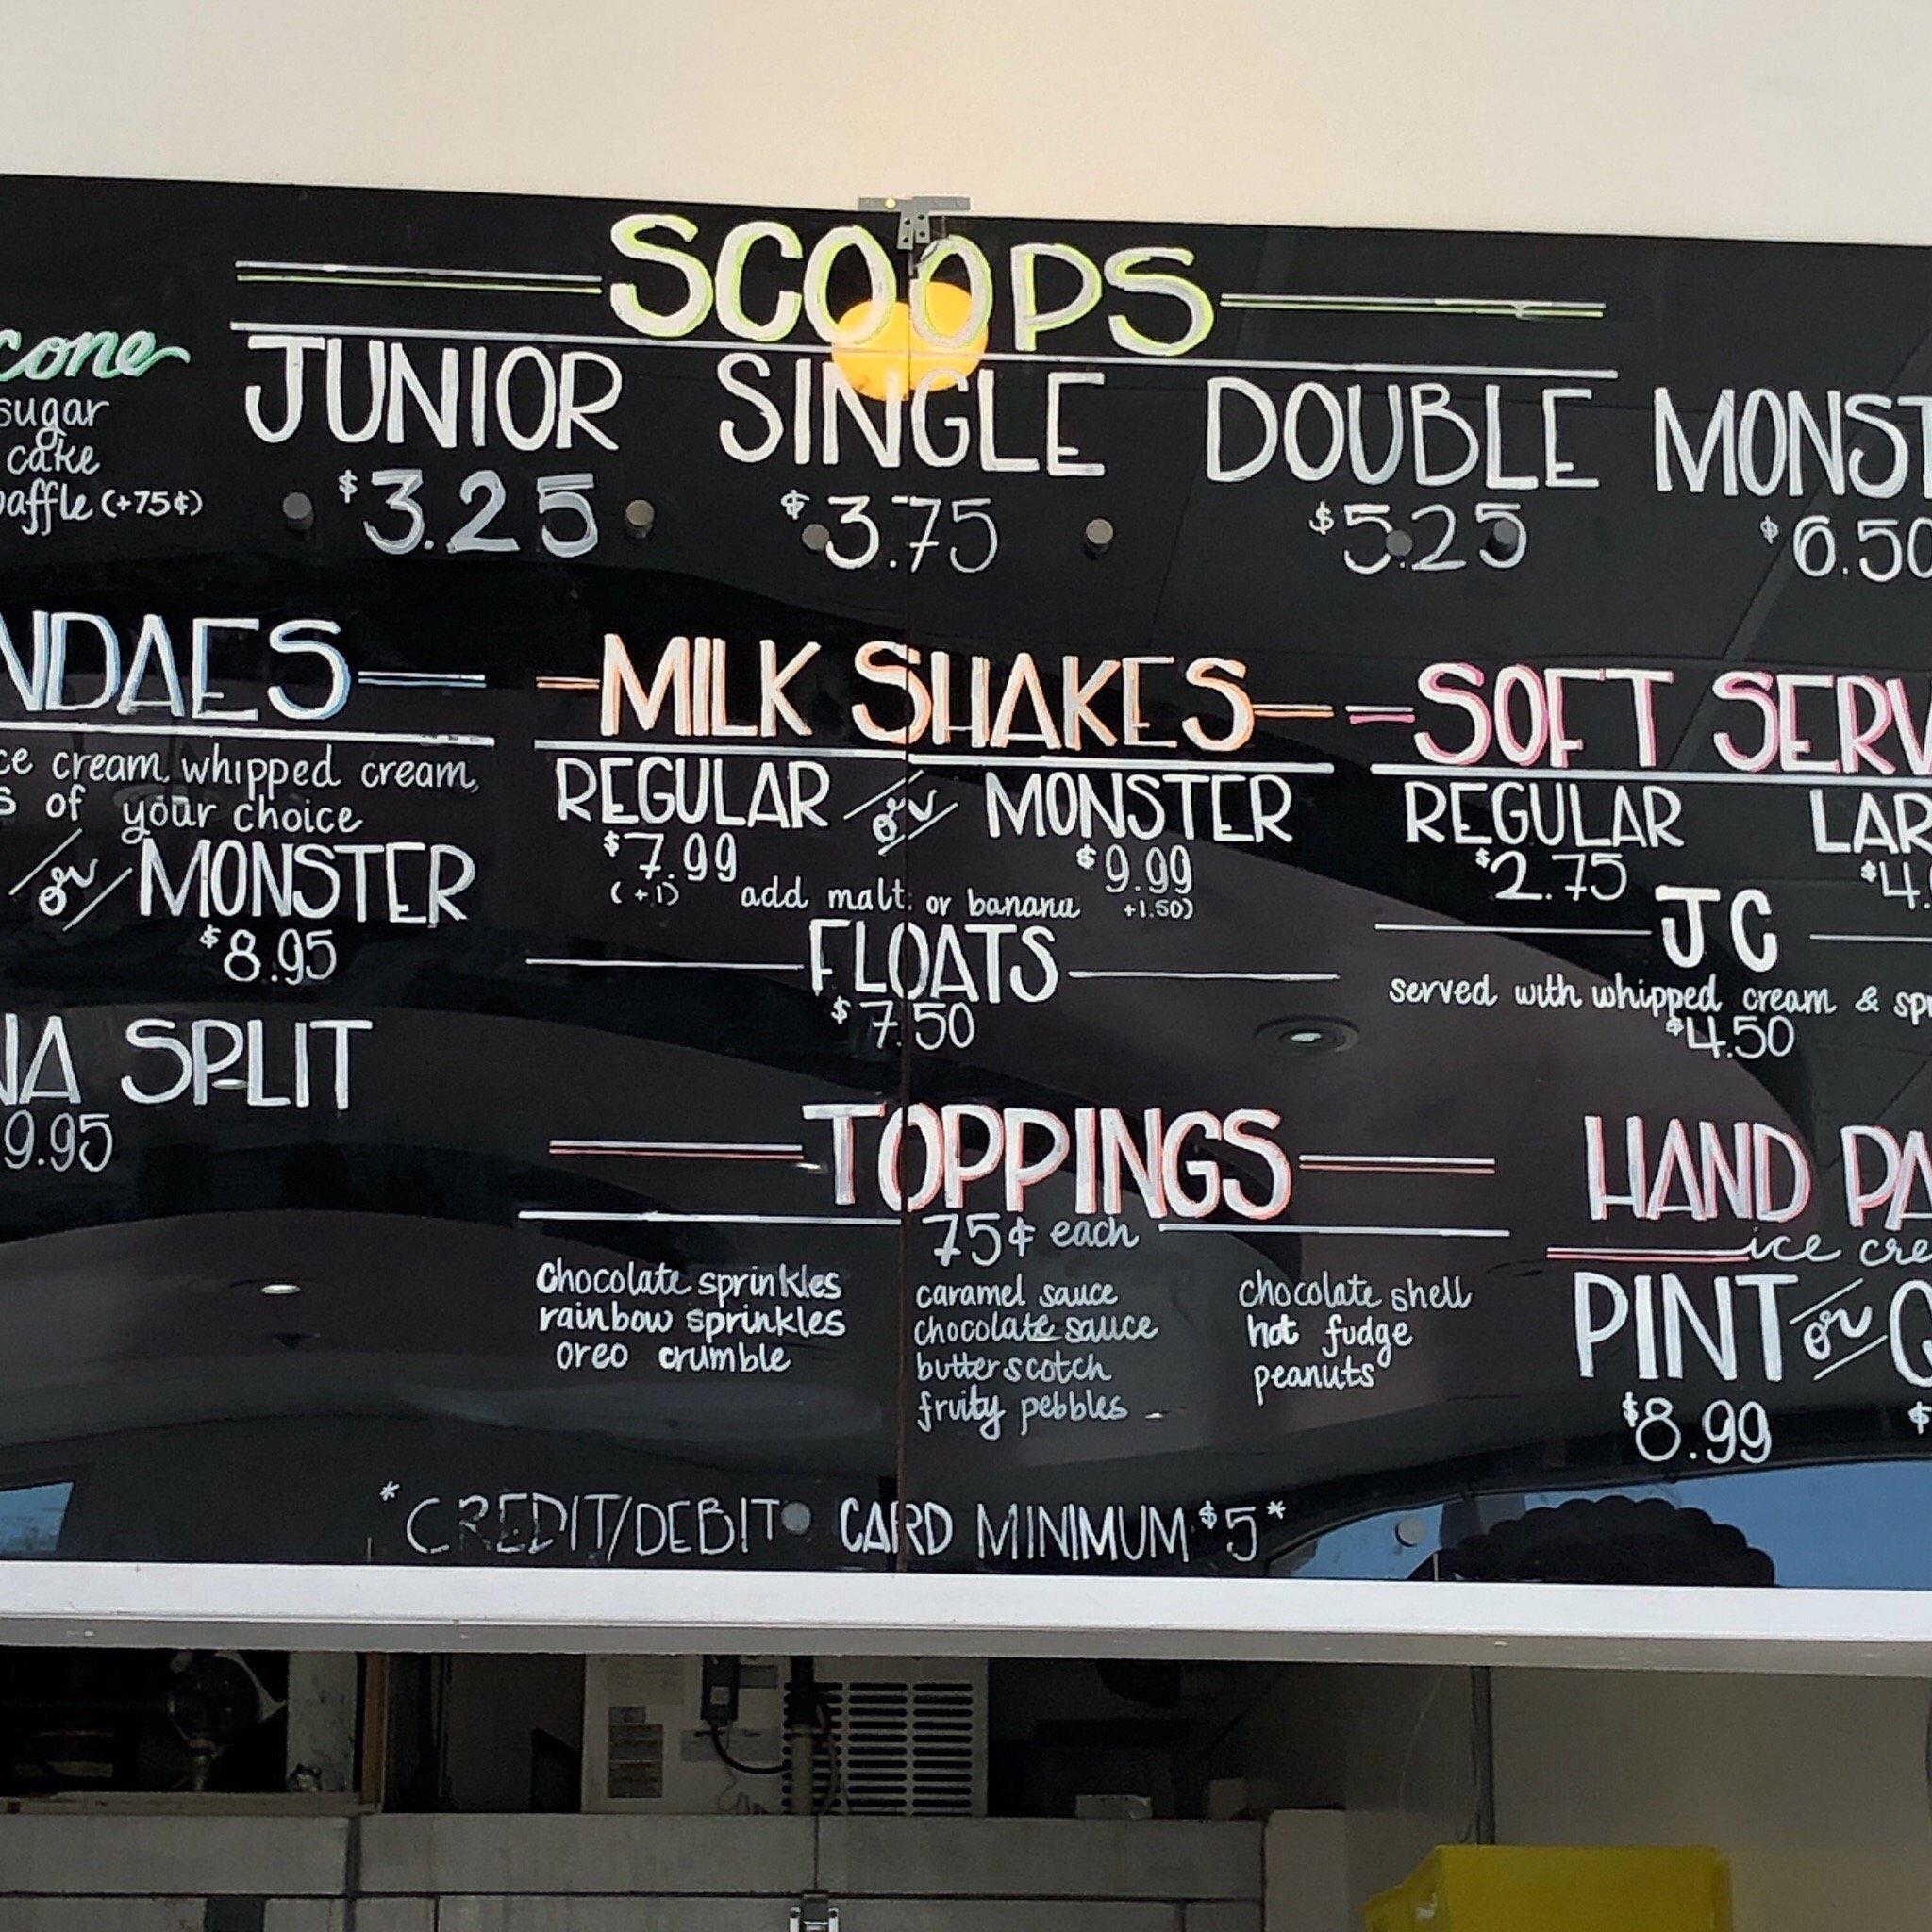 SCOOPS
cone
sugar
cake
(+75¢)
JUNIOR SINGLE DOUBLE MONST
$3.25 $3.75 $5.25 $6.50
NDAES
ce cream, whipped cream,
s of your choice
or MONSTER
$8.95
NA SPLIT
9.95
MILK SHAKES
REGULAR or MONSTER
$7.99 $9.99
(+1) add malt or banana +1.50)
FLOATS
$7.50
SOFT SERV
REGULAR LAR
$2.75 $4.
JC
served with whipped cream & spr
$4.50
TOPPINGS
75¢ each
chocolate sprinkles
rainbow sprinkles
oreo crumble
caramel sauce
chocolate sauce
butterscotch
fruity pebbles
chocolate shell
hot fudge
peanuts
HAND PA
ice cre
PINT or Q
$8.99 $
*CREDIT/DEBIT CARD MINIMUM $5*